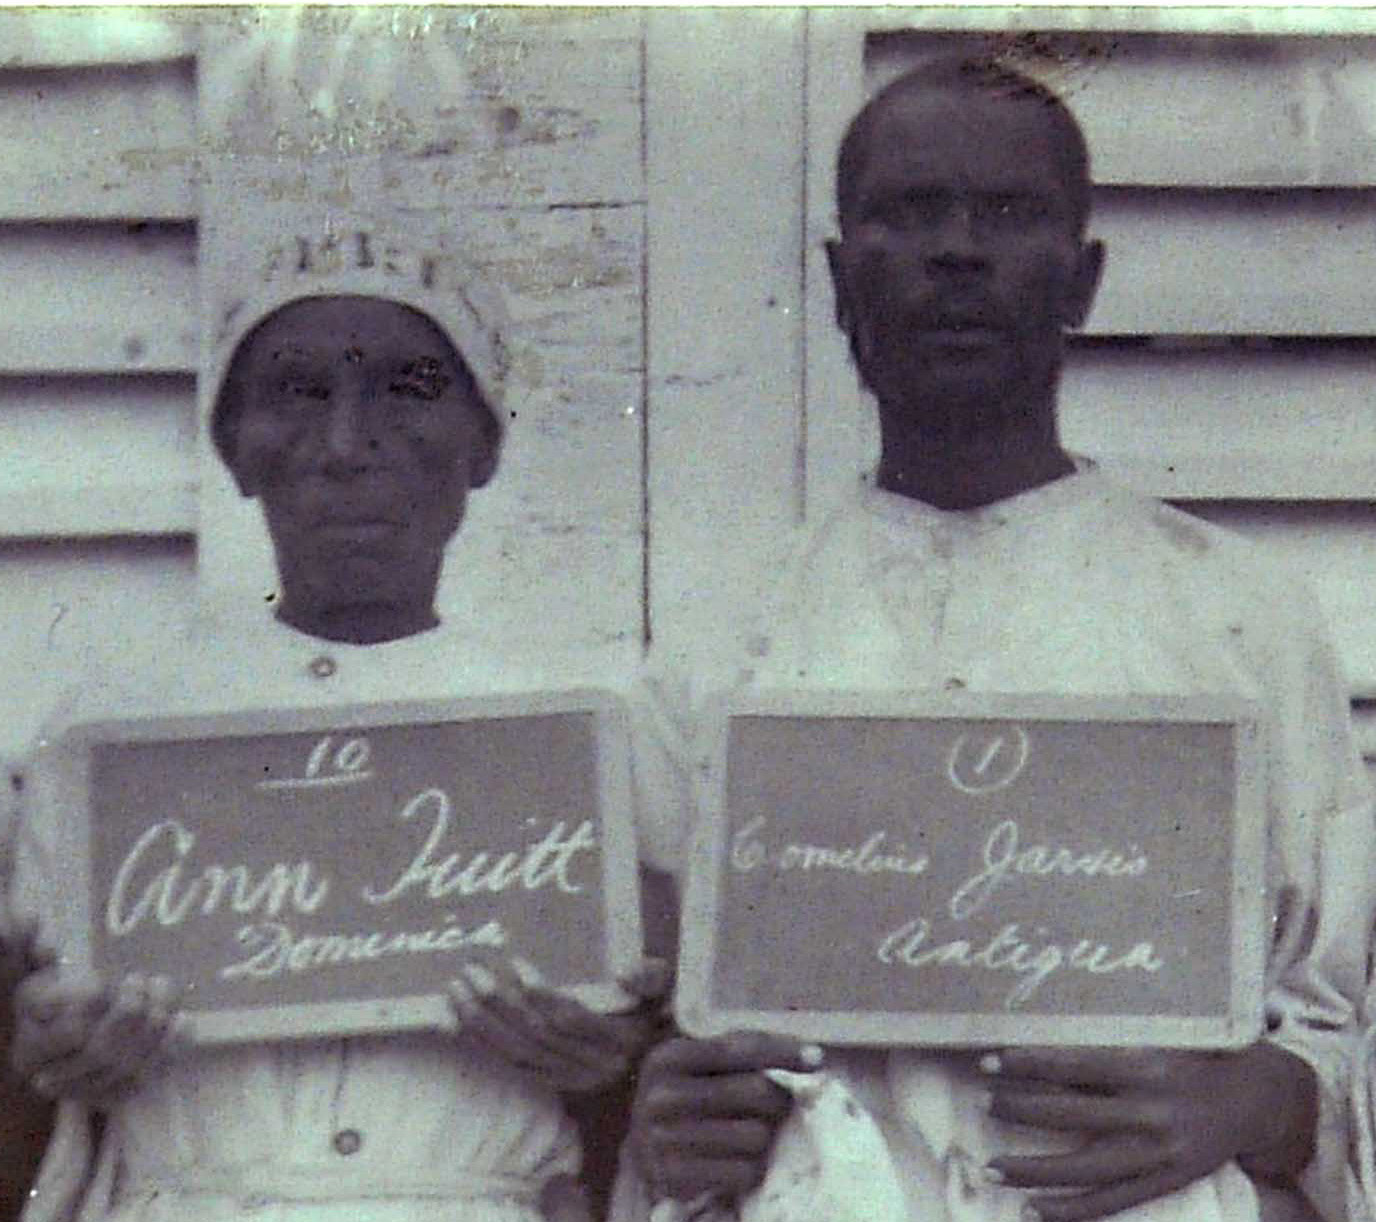 10
Ann Tuitt
Dominica
1
Cornelius Jarvis
Antigua